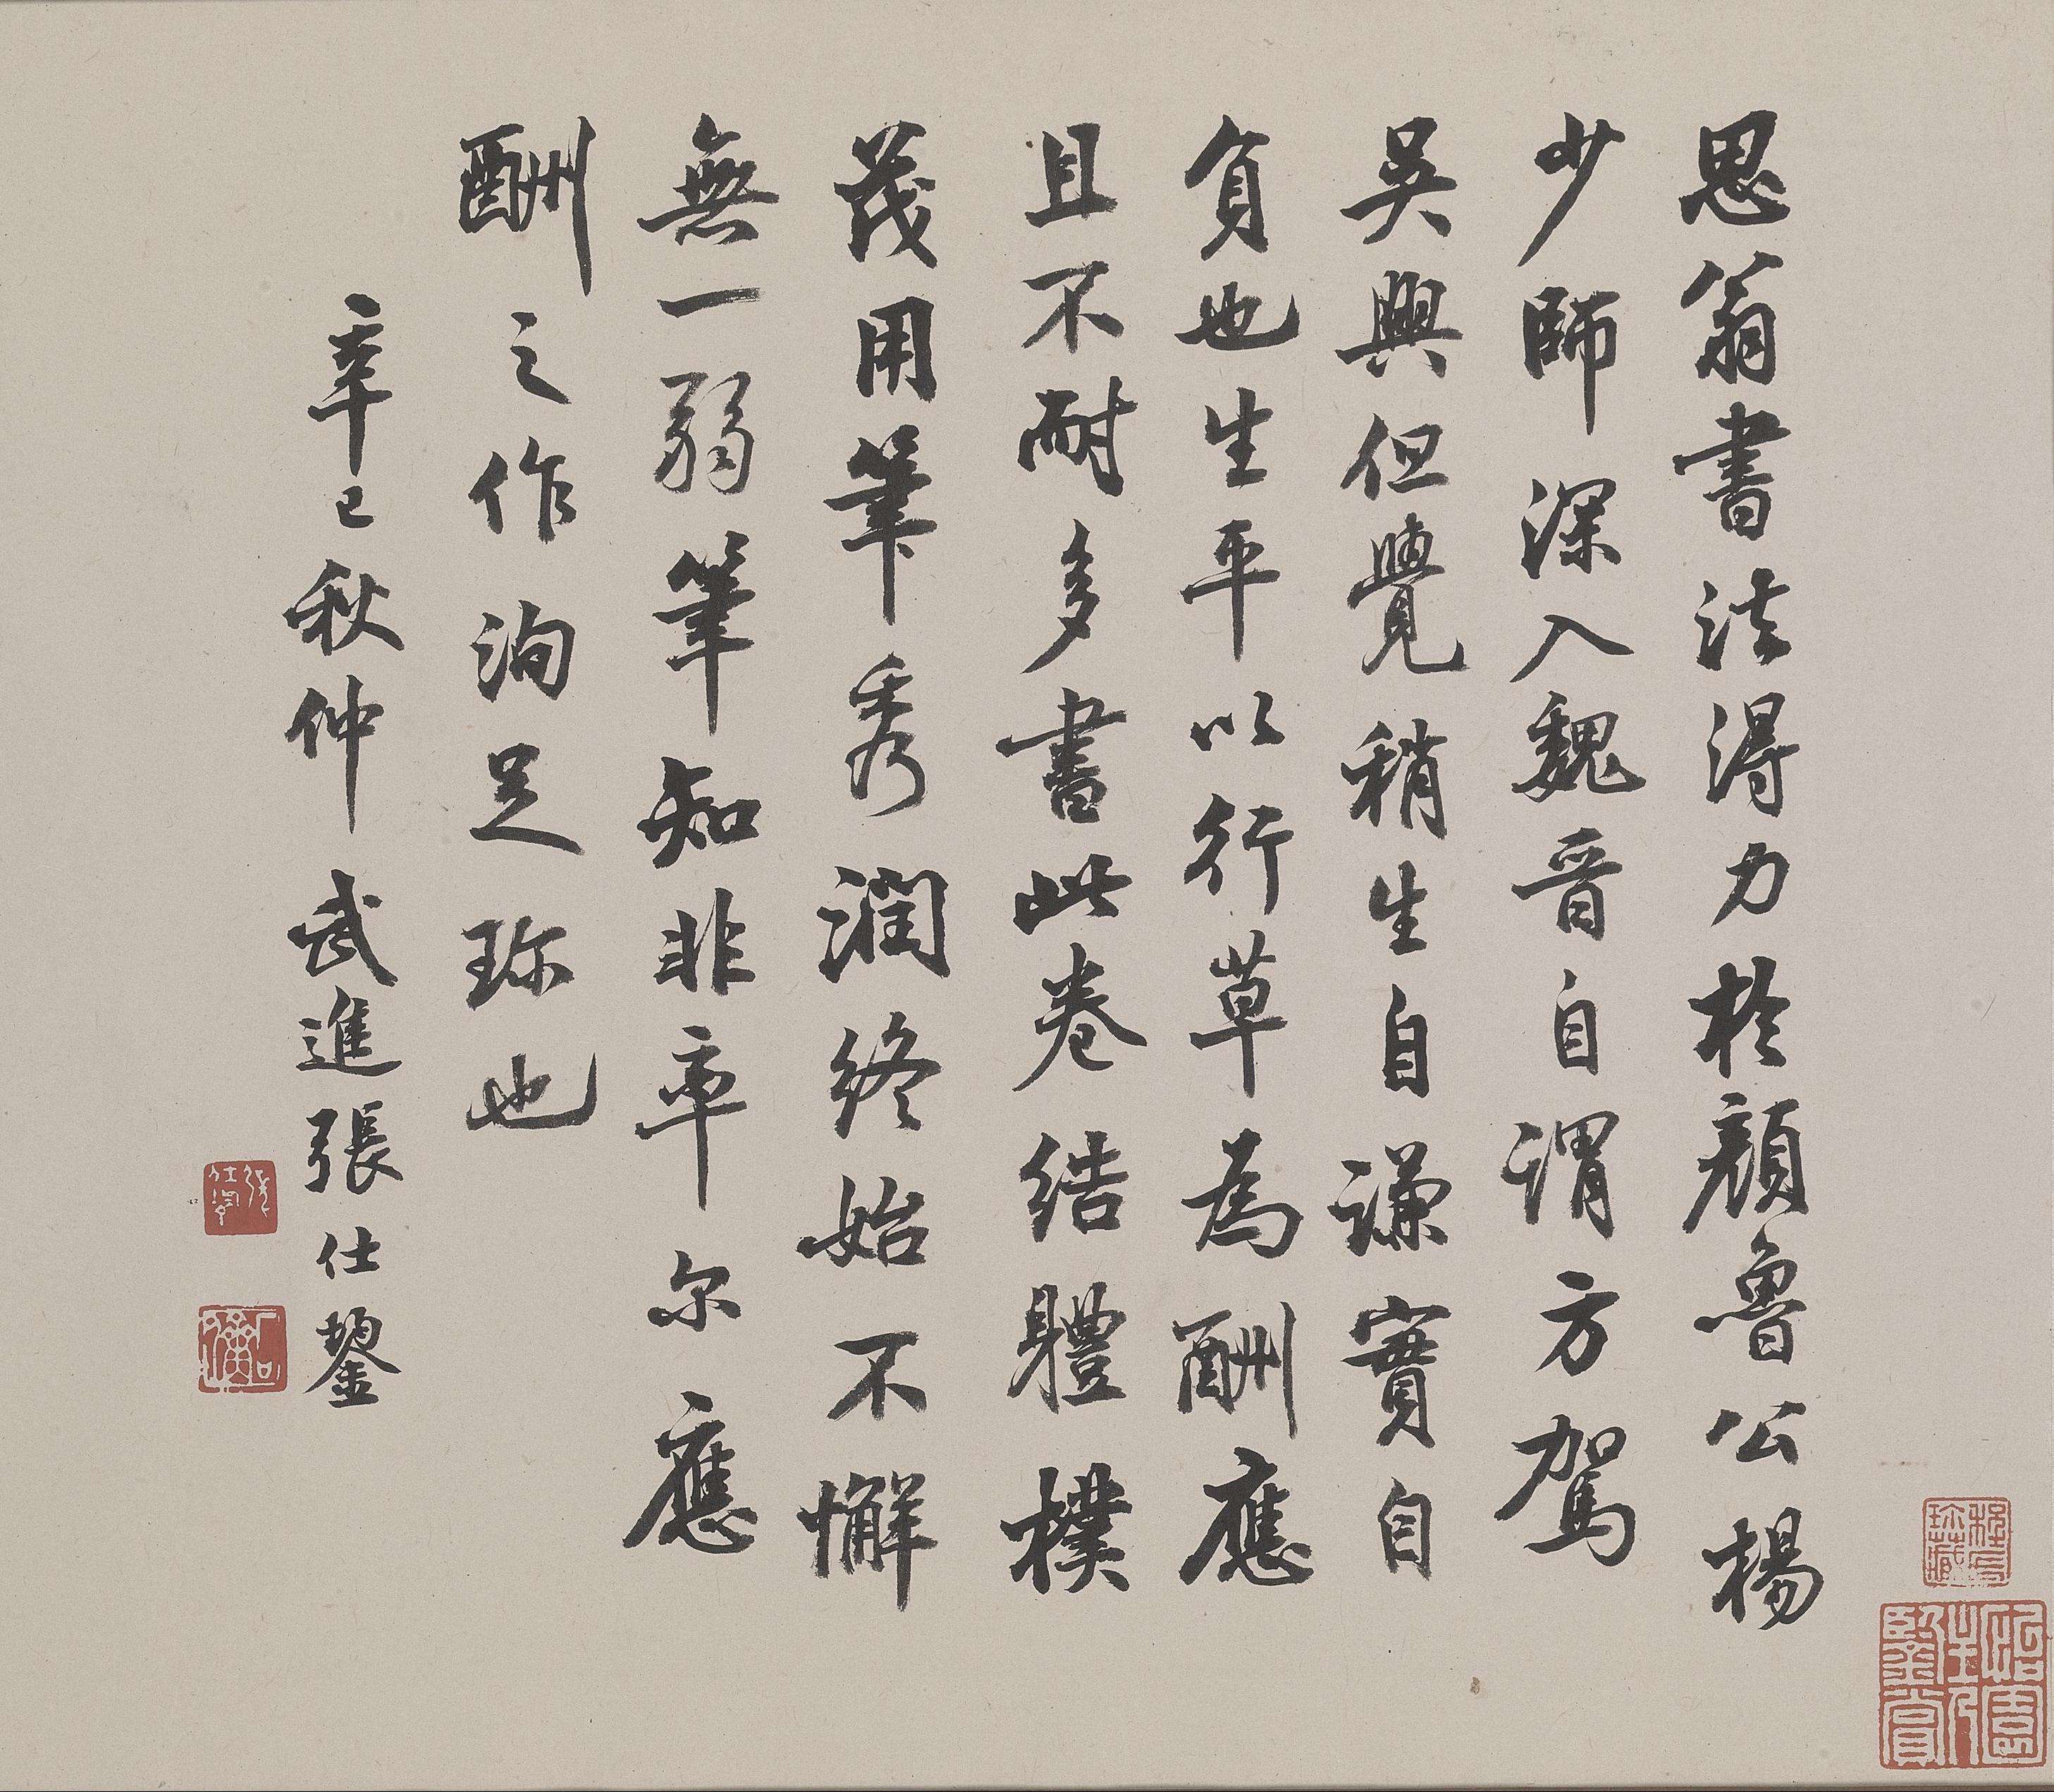 思翁書法得力於顏魯公楊
少師深入魏晉自謂方駕
吳興但覺稍生自謙實自
負也生平以行草為酬應
且不耐多書此卷結體樸
茂用筆秀潤終始不懈
無一弱筆知非率尔應
酬之作洵足珎也
辛巳秋仲武進張仕鋆